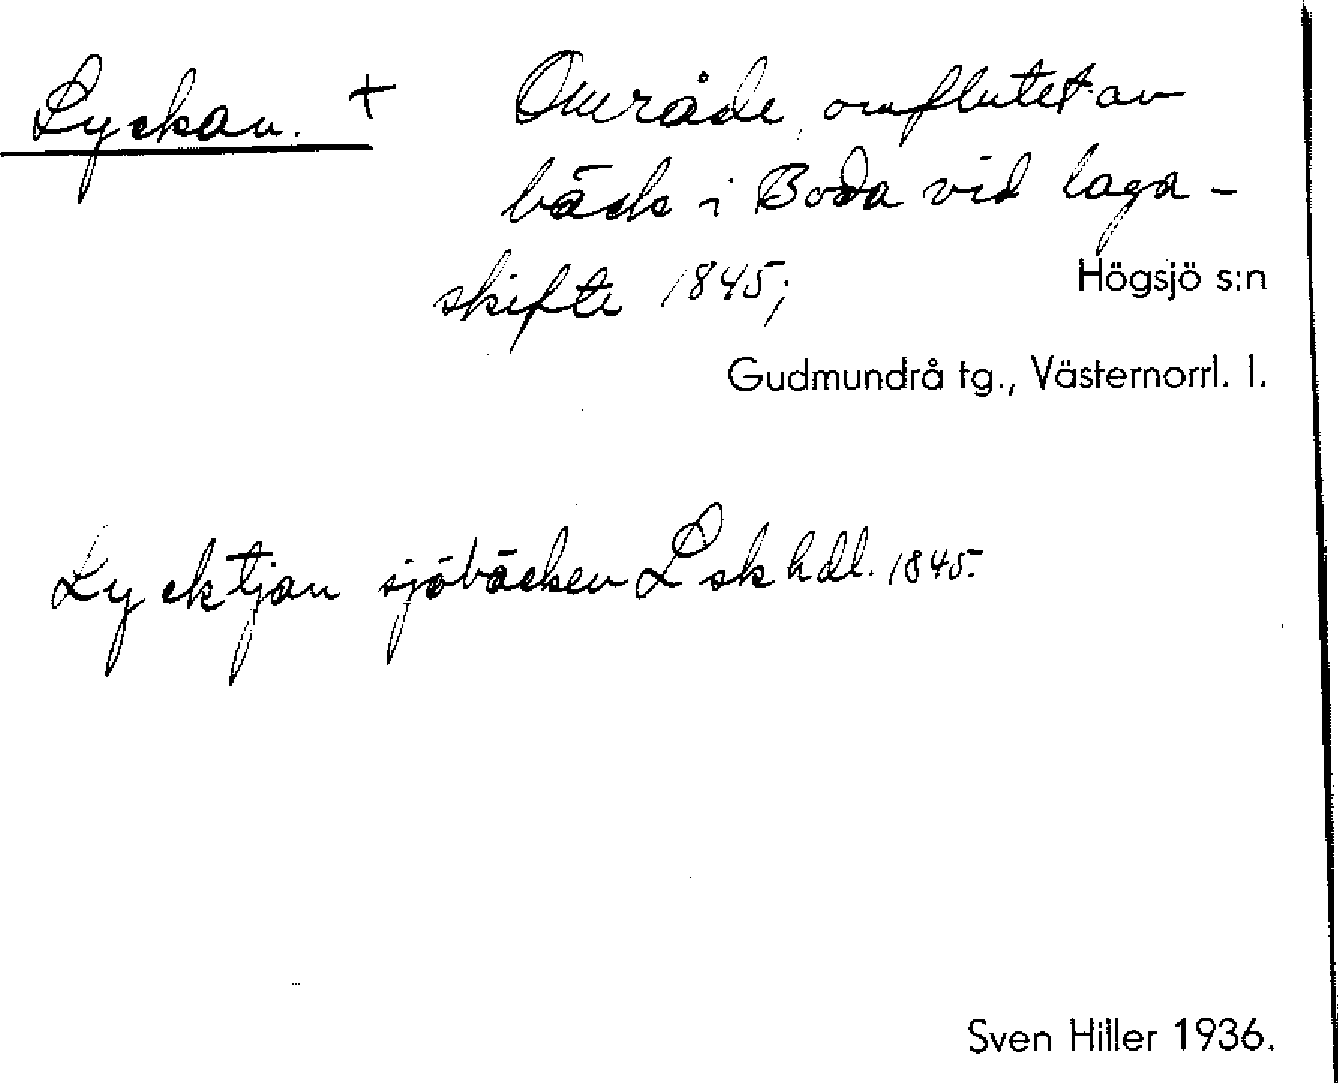 Lyckan. + Område, omflutet av
bäck i Boda vid laga-
skifte 1845;
Högsjö s:n
Gudmundrå tg., Västernorrl. l.
Lycktjan sjöbäcken L sk hdl. 1845.
Sven Hiller 1936.